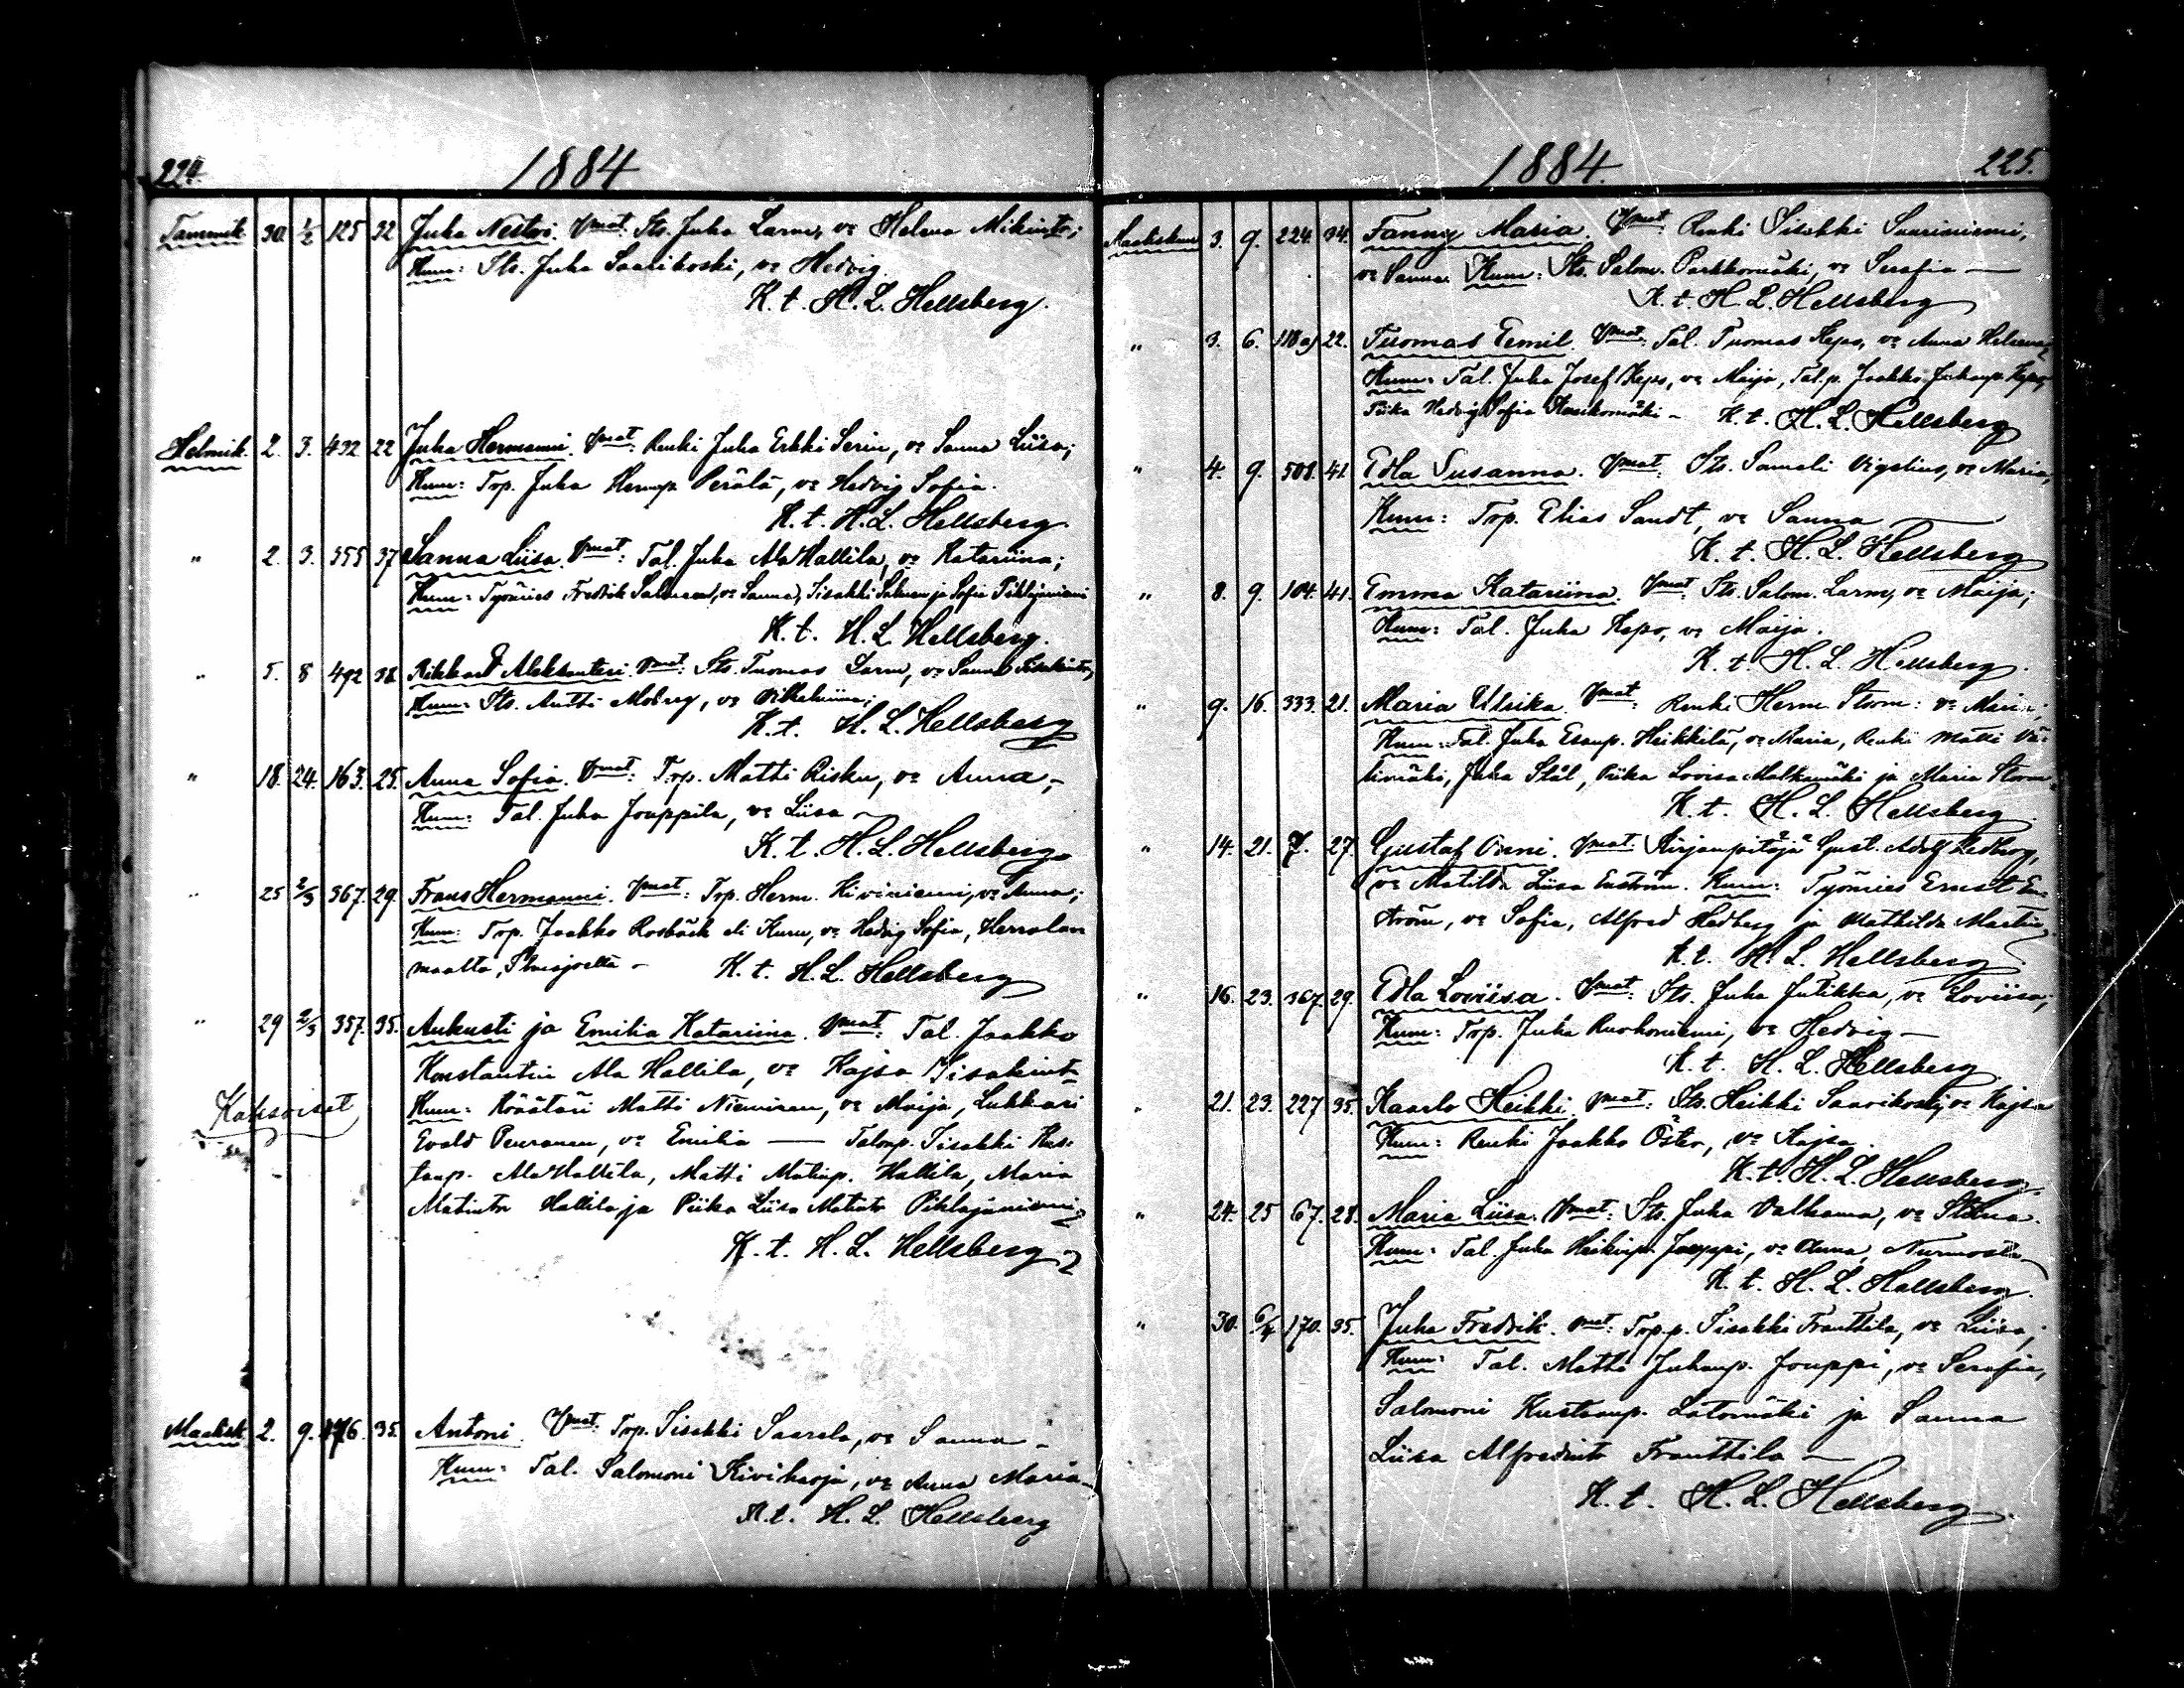 224. 1884
Tammik. 30. 1/2 125 32 Juha Nestori. Vmat. Its. Juha Larm, vo Helena Mikintr;
Kum: Its. Juha Saarikoski, vo Hedvig.
K. t. H. L. Hellsberg.
Helmik. 2. 3. 432 22 Juha Hermanni. Vmat: Renki Juha Erkki Serin, vo Sanna Liisa;
Kum: Trp. Juha Hermp. Perälä, vo Hedvig Sofia.
K. t. H. L. Hellsberg
" 2. 3. 355 37 Sanna Liisa. Vmat: Tal. Juha Ala Hallila, vo Katariina;
Kum: Työmies Fredrik Salmenol, vo Sanna, Iisakki ja Sofia Pihlajaniemi
K. t. H. L. Hellsberg.
" 5. 8 492 38. Rikhard Aleksanteri Vmat: Its. Tuomas Larm, vo Sanna Iisakintr;
Kum: Its. Antti Moberg, vo Vilhelmiina;
K. t. H. L. Hellsberg
" 18. 24. 163. 25. Anna Sofia. Vmat: Trp. Matti Risku, vo Anna;
Kum: Tal. Juha Jouppila, vo Liisa
K. t. H. L. Hellsberg
" 25 2/3 367. 29. Frans Hermanni. Vmat: Trp. Herm. Kiviniemi, vo Anna;
Kum: Trp. Jaakko Rosbäck eli Kuru, vo Hedvig Sofia, Herralan
maalta, Ilmajoelta - K. t. H. L. Hellsberg
" 29 2/3 357. 35. Aukusti ja Emilia Katariina. Vmat: Tal. Jaakko
Konstantin Ala Hallila, vo Kajsa Iisakintr
Kaksoiset Kum: Räätäri Matti Nieminen, vo Maija, Lukkari
Evald Peuranen, vo Emilia — Talonp. Iisakki Kus-
taap. Ala Hallila, Matti Matinp. Hallila, Maria
Matintr Hallila ja Piika Liisa Matintr Pihlajaniemi
K. t. H. L. Hellsberg
Maalisk. 2. 9. 476. 35. Antoni. Vmat: Trp. Iisakki Saarela, vo Sanna -
Kum: Tal. Salomoni Kiviharja, vo Anna Maria
K. t. H. L. Hellsberg
1884. 225.
Maaliskuu 3. 9. 224. 34. Fanny Maria. Vmat: Renki Iisakki Saariniemi,
vo Sanna. Kum: Its. Salom. Parkkomäki, vo Serafia —
K. t. H. L. Hellsberg
" 3. 6. 118 a) 22. Tuomas Eemil. Vmat: Tal. Tuomas Kepo, vo Anna Helena
Kum: Tal. Juha Josef Kepo, vo Maija, Tal.p. Jaakko Juhanp. Kepo,
Piika Hedvig Sofia - K. t. H. L. Hellsberg
" 4. 9. 508. 41. Edla Susanna. Vmat: Its. Sameli Vigelius, vo Maria,
Kum: Trp. Elias Sandt, vo Sanna
K. t. H. L. Hellsberg
" 8. 9. 104. 41. Emma Katariina. Vmat: Its. Salom. Larm, vo Maija;
Kum: Tal. Juha Kepo, vo Maija.
K. t. H. L. Hellsberg.
" 9. 16. 333. 21. Maria Ulrika. Vmat: Renki Herm. Storm: vo Maria;
Kum: Tal. Juha Esaup. Heikkilä, vo Maria, Renki Matti Vä-
limäki, Juha Stål, Piika Lovisa Malkamäki ja Maria Storm
K. t. H. L. Hellsberg
" 14. 21. 7. 27. Gustaf Onni. Vmat: Kirjanpitäjä Gust. Adolf Hedberg,
vo Matilda Liisa Enström. Kum: Työmies Ernst En-
ström, vo Sofia, Alfred Hedberg ja Mathilda Martin
K. t. H. L. Hellsberg.
" 16. 23. 367. 29. Edla Loviisa. Vmat: Its. Juha Jutikka, vo Loviisa;
Kum: Trp. Juha Ruohoniemi, vo Hedvig —
K. t. H. L. Hellsberg
" 21. 23. 227 35. Kaarlo Heikki. Vmat: Its. Heikki Saarikoski, vo Kajsa
Kum: Renki Jaakko Öster, vo Kajsa.
K. t. H. L. Hellsberg.
" 24. 25 67. 28. Maria Liisa. Vmat: Its. Juha Valkama, vo Stiina.
Kum: Tal. Juha Heikinp. Jouppi, vo Anna, Nurmosta
K. t. H. L. Hellsberg.
" 30. 6/4 170. 35. Juha Fredrik. Vmat: Trp.p. Iisakki Franttila, vo Liisa;
Kum: Tal. Matti Juhanp. Jouppi, vo Serafia,
Salomoni Kustaanp. Latomäki ja Sanna
Liisa Alfredintr Franttila —
K. t. H. L. Hellsberg.